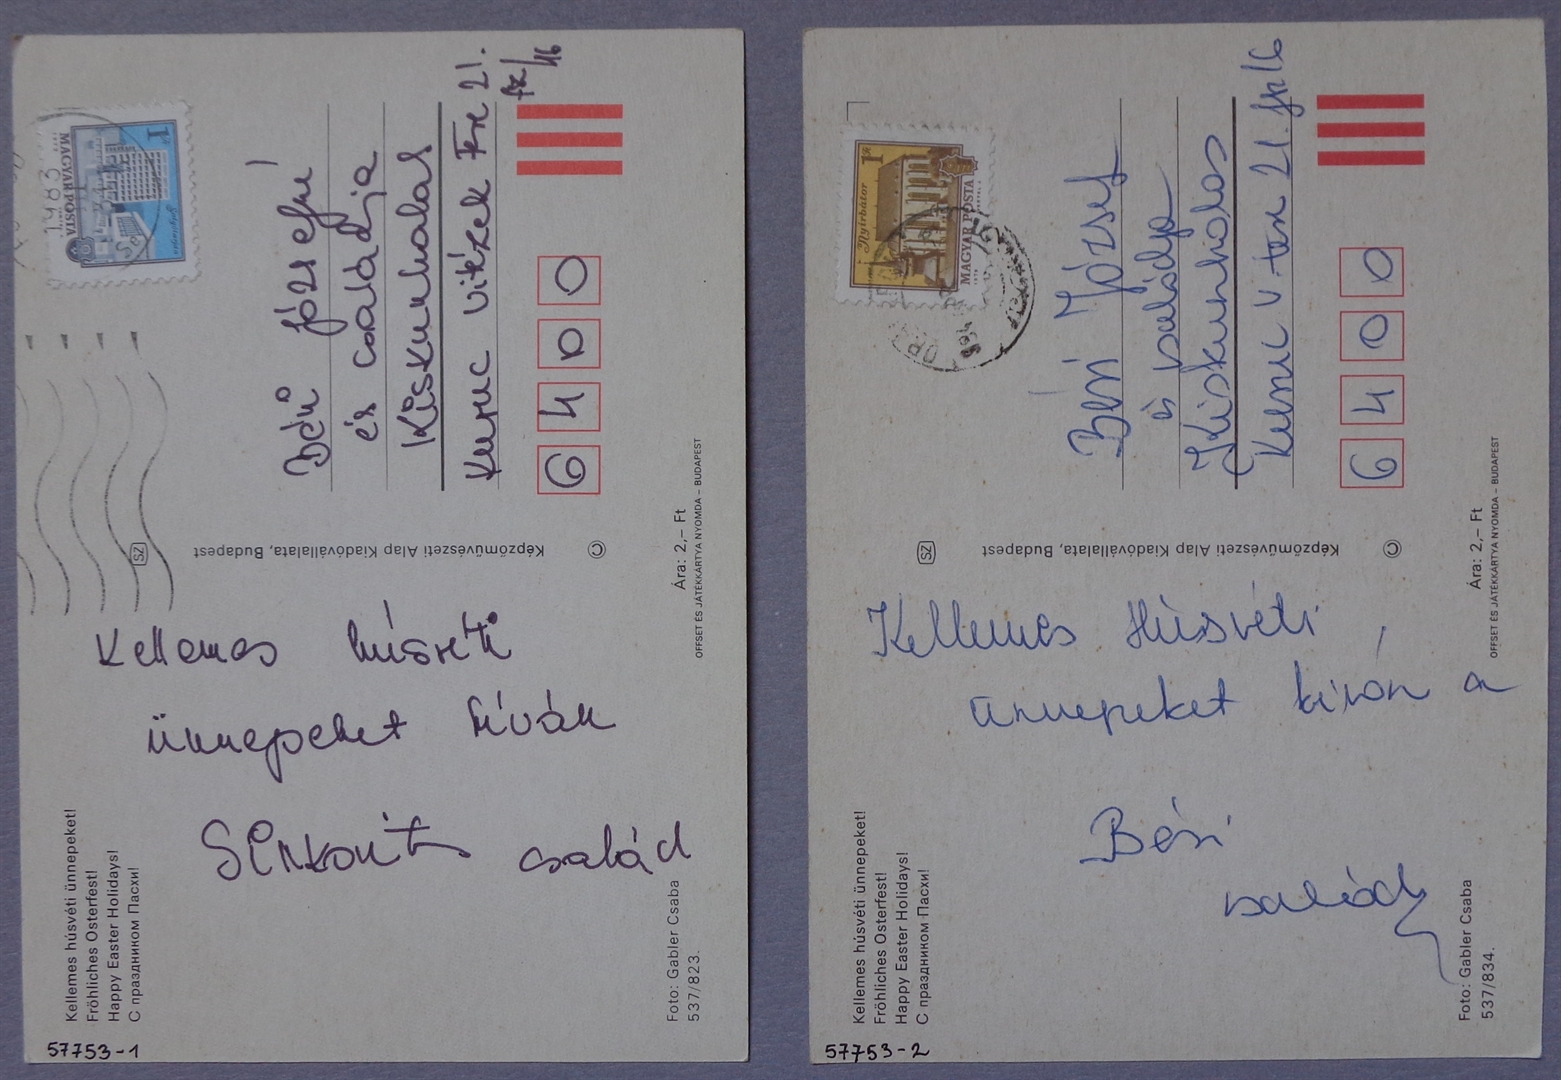 Kellemes húsvéti ünnepeket!
Fröhliches Osterfest!
Happy Easter Holidays!
С праздником Пасхи!
Kellemes húsvéti
ünnepeket kíván
család
Foto: Gabler Csaba
537/823.
Képzőművészeti Alap Kiadóvállalata, Budapest
SZ
©
Ára: 2,– Ft
OFFSET ÉS JÁTÉKKÁRTYA NYOMDA – BUDAPEST
1983
MAGYAR POSTA
1 Ft
Józsefné
és családja
Kiskunhalas
Kuruc vitézek tere 21.
fsz/16
6400
57753-1
Kellemes húsvéti ünnepeket!
Fröhliches Osterfest!
Happy Easter Holidays!
С праздником Пасхи!
Kellemes Húsvéti
ünnepeket kíván a
Béni
család
Foto: Gabler Csaba
537/834.
Képzőművészeti Alap Kiadóvállalata, Budapest
SZ
©
Ára: 2,– Ft
OFFSET ÉS JÁTÉKKÁRTYA NYOMDA – BUDAPEST
1 Ft
Nyírbátor
MAGYAR POSTA
Béni József
és családja
Kiskunhalas
Kuruc v tere 21.
6400
57753-2